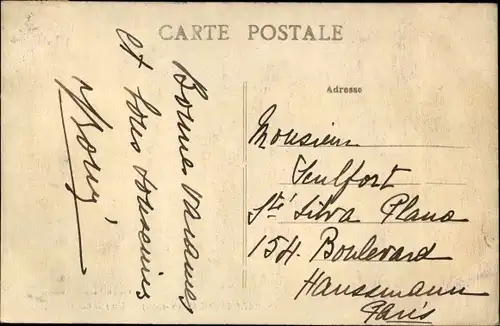 CARTE POSTALE
Adresse
Bonnes vacances
et bons souvenirs
Monsieur
Senlfort
Sté Silva Plana
154 Boulevard
Haussmann
Paris